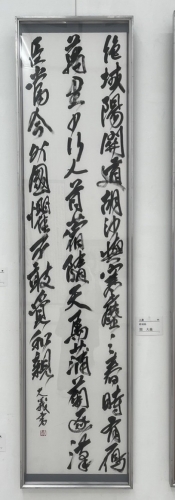 絶域陽関道胡沙與塞塵三春時有雁
萬里少行人苜蓿随天馬蒲萄逐漢
臣當令外國懼不敢覓和親